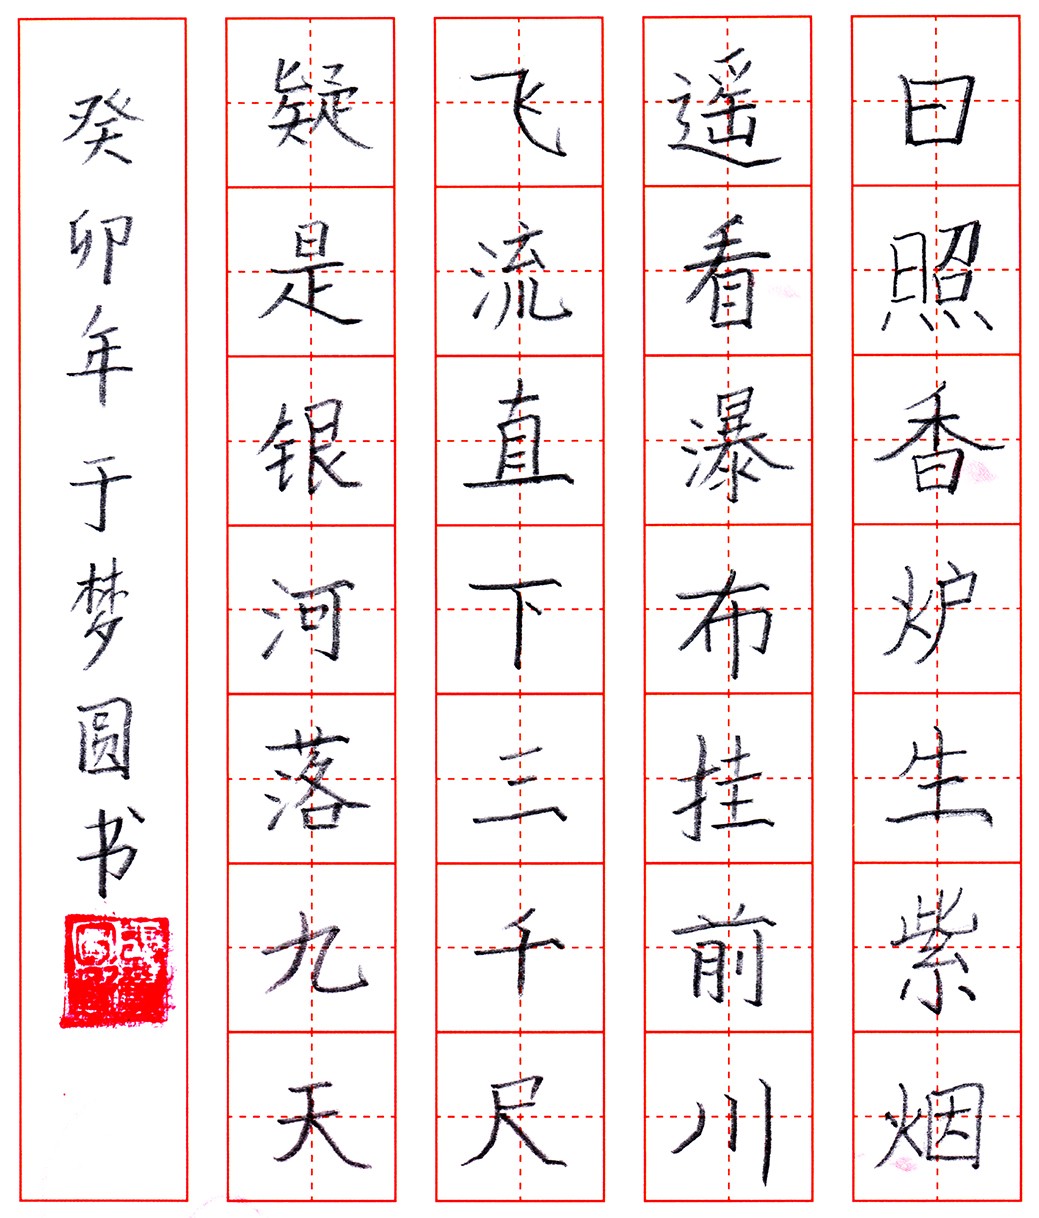 日照香炉生紫烟
遥看瀑布挂前川
飞流直下三千尺
疑是银河落九天
癸卯年于梦圆书